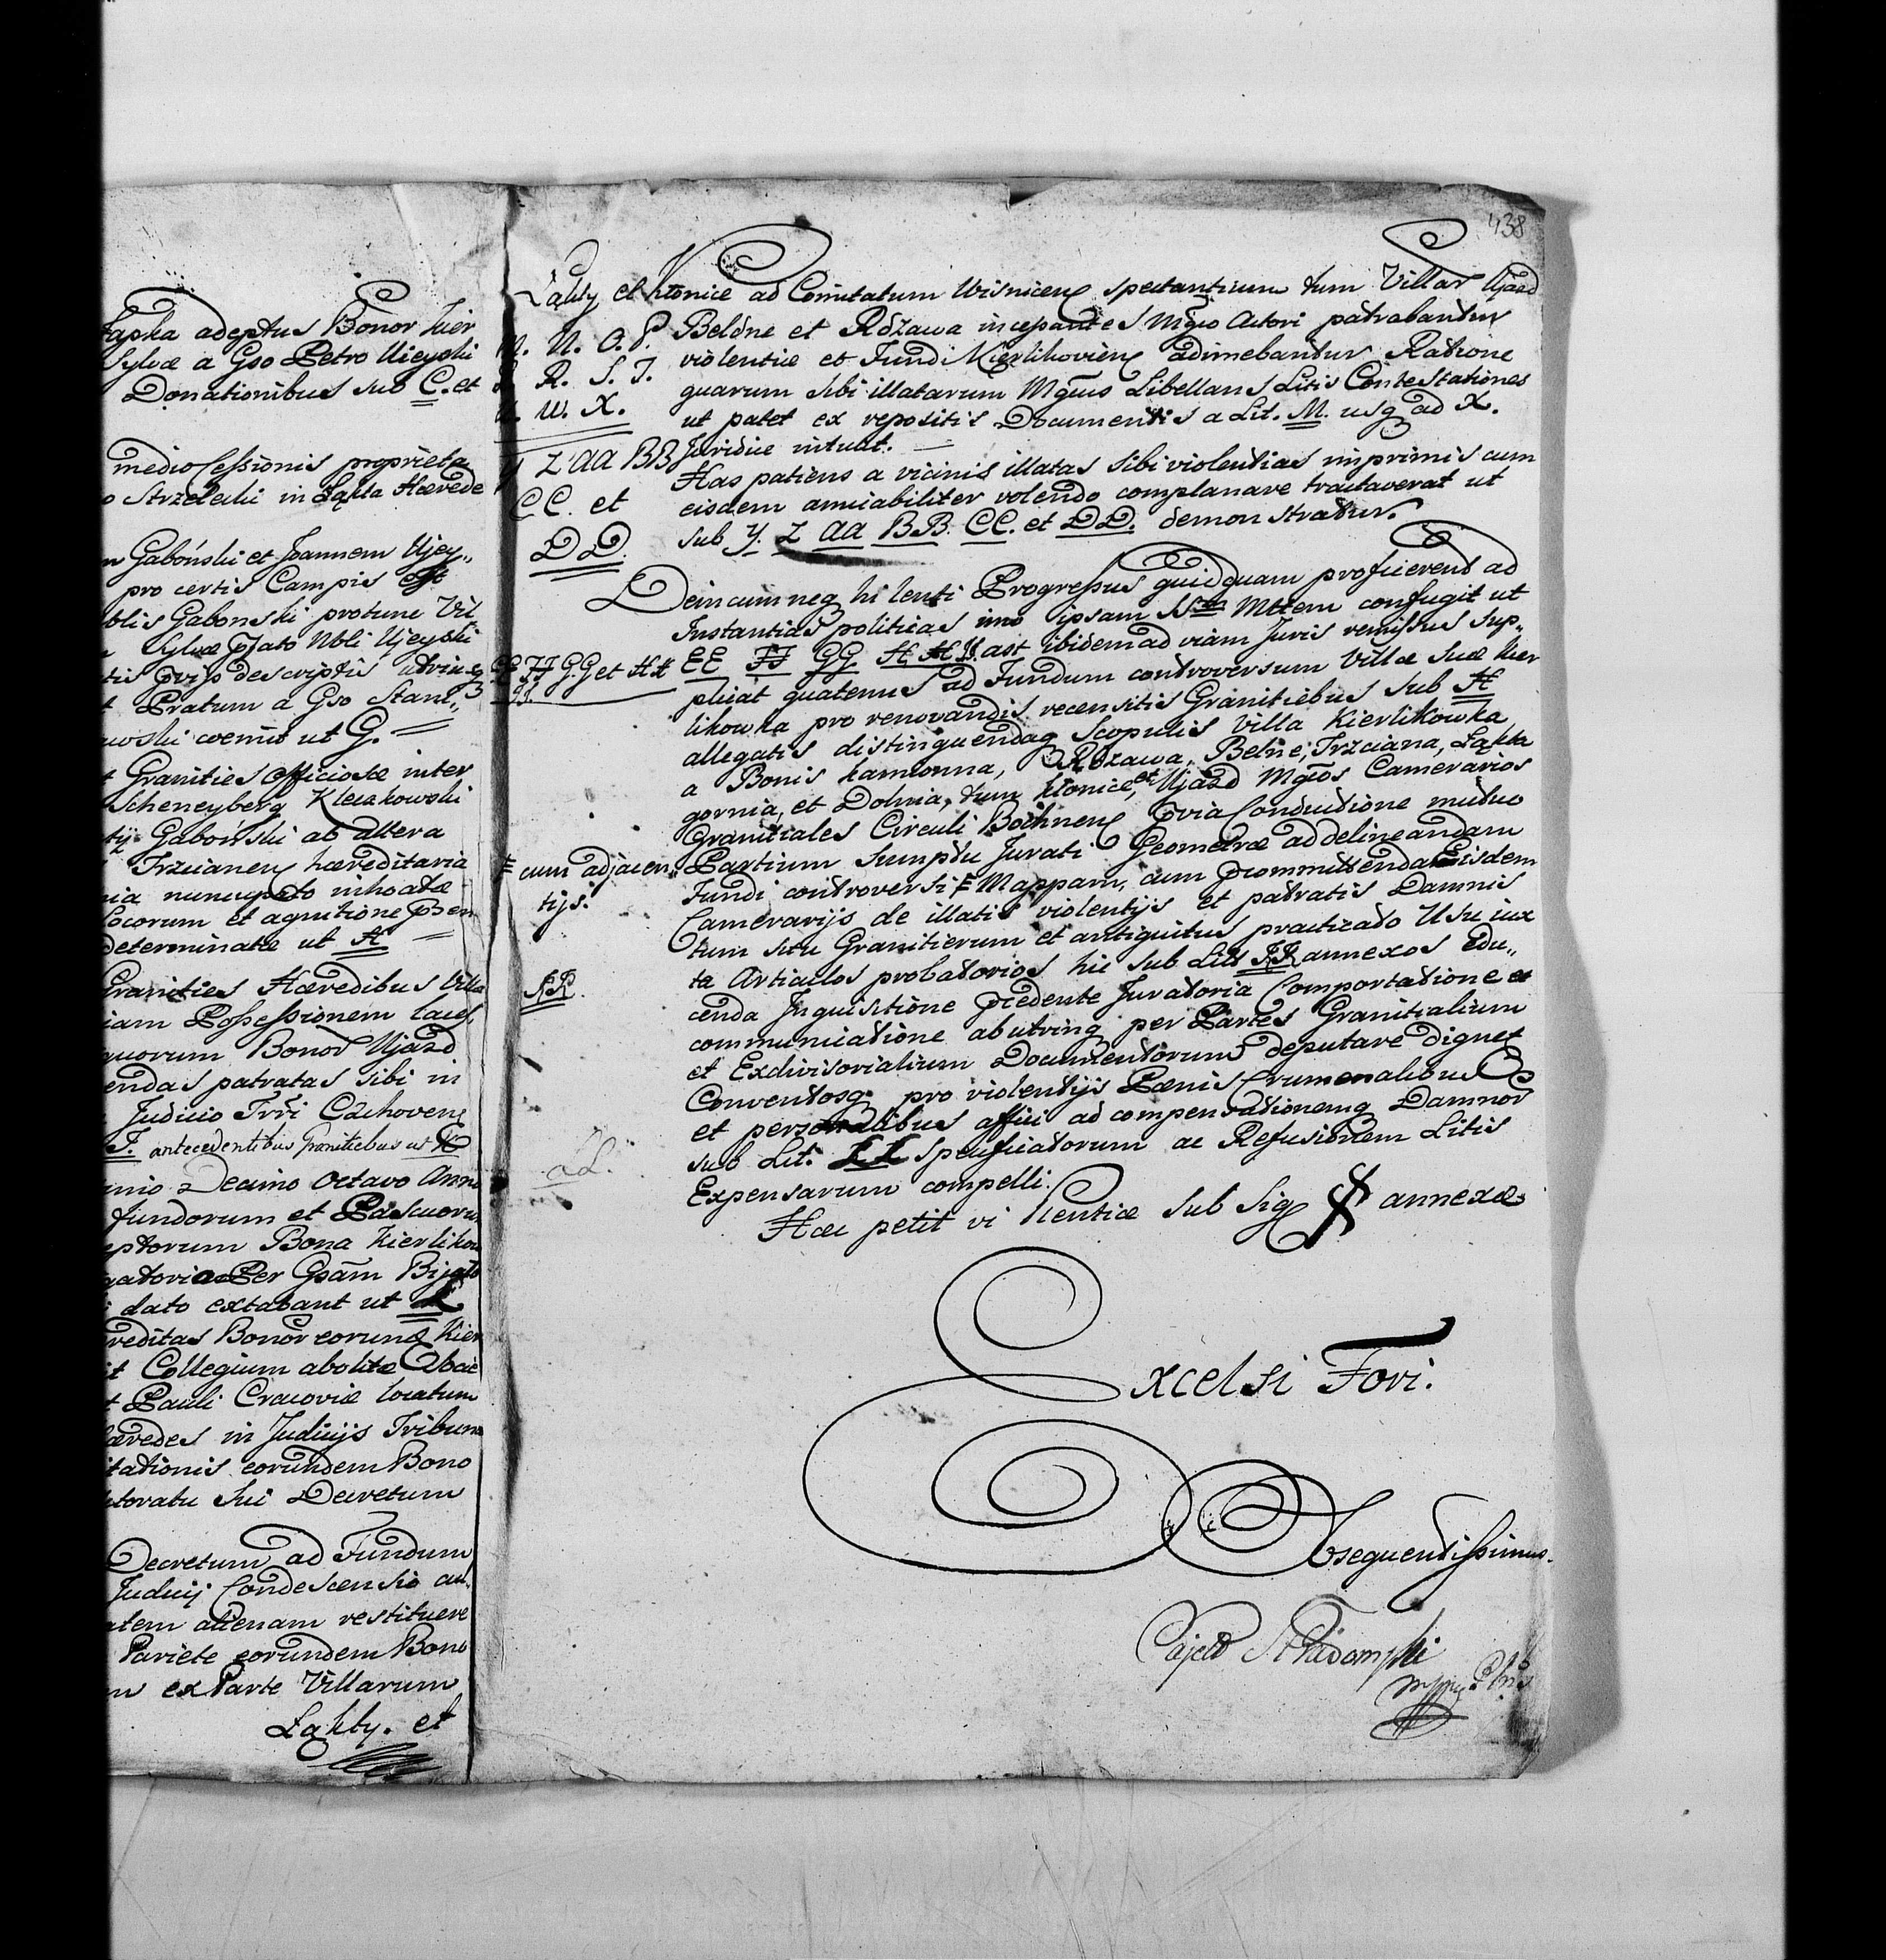 Łapka adeptus Bonor Kier
Sylvæ a Gso Petro Uieyski
Donationibus sub C. et
medio Cessionis proprieta
o Strzelecki in Łąkta Hærede
m Gaboński et Joannem Ujey„
pro certis Campis
blis Gabonski protunc Vil
Sylvæ Nbli Ujeyski
descriptis utriusq
t Pratum a Gso Stani„
wski coemit ut G.
t Granities Officiosæ inter
Scheneyberg Kleczkowski
tij Gaboński ab altera
Trzcianen hæreditaria
nia nuncupato inhoatæ
Locorum et agnitione
determinatæ ut H
Granities Hæredibus Villæ
iam Possessionem
quorum Bonor Ujazd
endas patratas sibi in
Judicio Trri Czchoven
J. antecedentibus Granitiebus ut K
Decimo Octavo Anno
fundorum et Pascuorum
eptorum Bona Kierlikow
gatoriæ Per Gsam
dato extabant ut L
reditas Bonor eorund Kier
it Collegium abolitæ Abaie
t Pauli Cracoviæ locatum
æredes in Judicijs Tribuna
itationis eorundem Bono
toratu sui Decretum
Decretum ad Fundum
Judicij Condescensio
tem alienam restituere
Pariete eorundem Bono
m ex Parte Villarum
Łąkty. et
438
Łąkty et Kłonice ad Comitatum Wisnicen spectantium tum Villar Ujazd
M. N. O. P. Beldne et Rozawa incepantes Mgco Actori patrabantur
R. S. T. violentiæ et Fundi Kierlikovien adimebantur Ratione
quarum sibi illatarum Mgcus Libellans Litis Contestationes
U. W. X. ut patet ex repositis Documentis a Lit. M. usq ad X.
Juridice intuat.
Y Z AA BB Has patiens a vicinis illatas sibi violentias imprimis cum
CC. et eisdem amicabiliter volendo complanare tractaverat ut
DD. sub Y. Z AA BB. CC. et DD. demonstratur.
Dein cum neq hi lenti Progressus quidquam proficerent ad
Instantias politicas imo ipsam Ssm Mttem confugit ut
EE FF GG et HH EE FF GG HH II. ast ibidem ad viam Juris remissus sup„
II. plicat quatenus ad Fundum controversum Villæ suæ Kier
likowka pro renovandis recensitis Granitiebus sub H
allegatis distinguendaq Scopulis Villa Kierlikowka
a Bonis Kamionna, Rozawa, Belne, Trzciana, Łąkta
gornia, et Dolnia, tum Kłonice, et Ujazd Mgcos Camerarios
Granitiales Circuli Bochnen prævia Conductione mutuo
Partium Sumptu Jurati Geometræ ad delineandam
⹀ cum adjacen„ Fundi controversi ⹀ Mappam, cum promittenda Eisdem
tijs. Camerarijs de illatis violentijs et patratis Damnis
tum situ Granitierum et antiquitus practizato Usu iux
ta Articulos probatorios hic sub Lit KK annexos edu„
KK. cenda Inquisitione præcedente Juratoria Comportatione et
communicatione ab utrinq per Partes Granitialium
et Exdivisorialium Documentorum deputare dignet
Conventosq pro violentijs Pænis Crumenalibus
et personalibus affici ad compensationemq Damnor
LL. sub Lit. LL specificatorum ac Refusionem Litis
Expensarum compelli.
Hæc petit vi Plentiæ sub Sig annexæ
Excelsi Fori.
Obsequentissimus.
Cajet